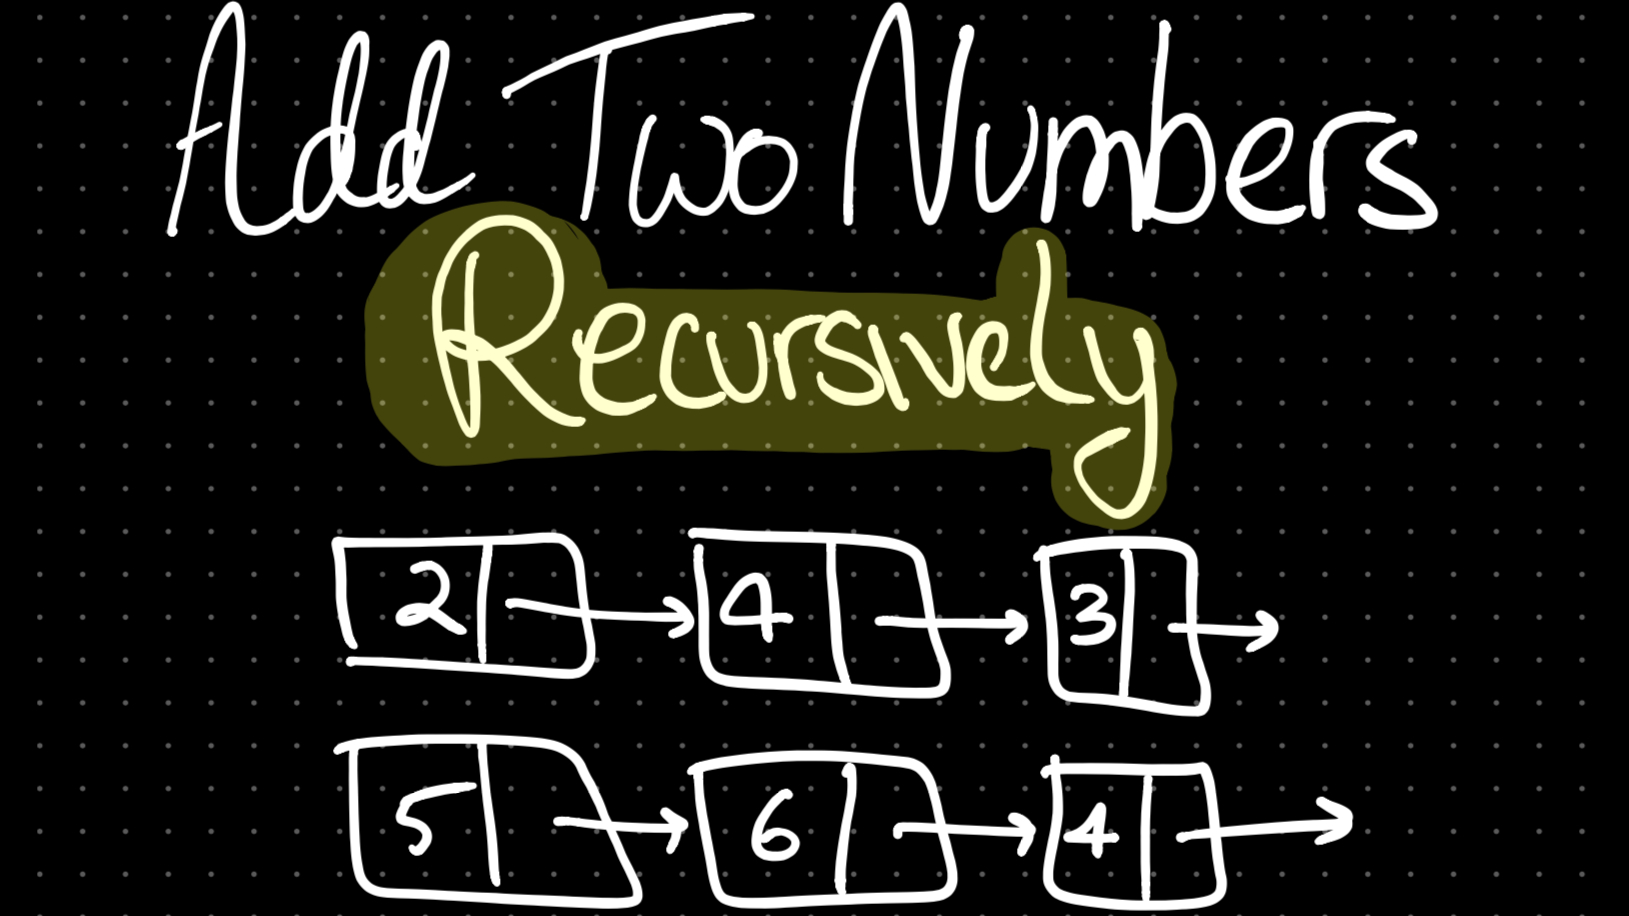 Add Two Numbers
Recursively
2 4 3
5 6 4